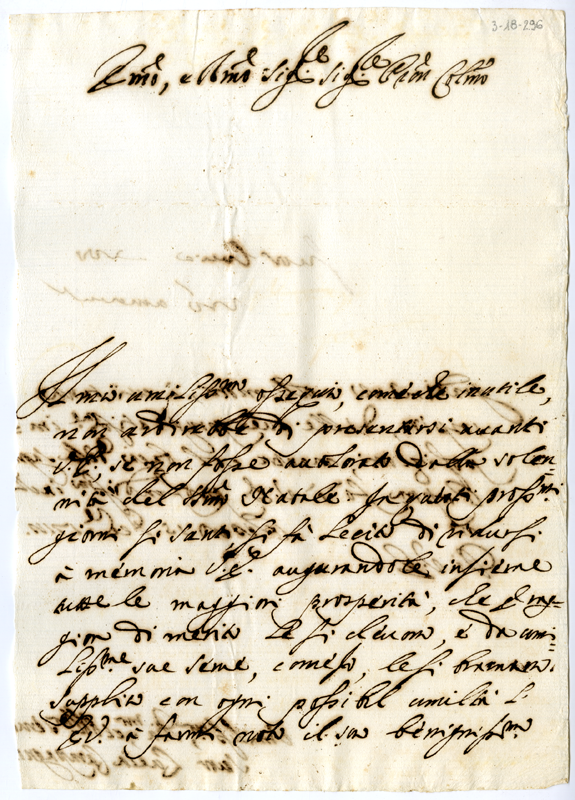 3-18-296
Emo, e Rmo Sigre Sigre Pron Colmo
Il mio umilissmo ossequio, come che inutile,
non ardirebbe di presentarsi avanti
V. E., se non fosse autorato dalla solen=
nità del Ssmo Natale. In questi prossmi
giorni sì santi si fà lecito di ridursi
à memoria V. E. augurandole insieme
tutte le maggiori prosperità, che p ra=
gion di merito le si devono, e da umi=
lissme sue serve, come so, le si bramano.
Supplico con ogni possibil umiltà l'
E. V. à farmi noto il suo benignissmo